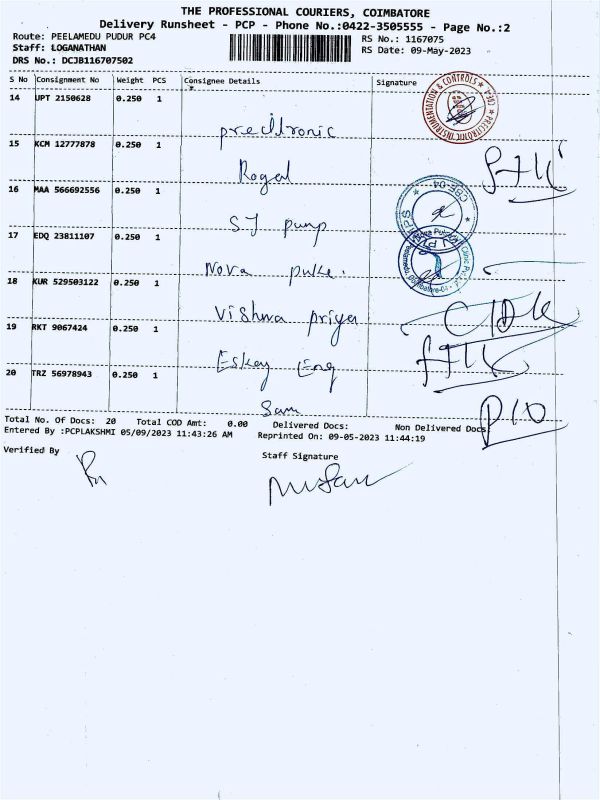 THE PROFESSIONAL COURIERS, COIMBATORE
Delivery Runsheet - PCP - Phone No.:0422-3505555 - Page No.:2
Route: PEELAMEDU PUDUR PC4
RS No.: 1167075
Staff: LOGANATHAN
RS Date: 09-May-2023
DRS No.: DCJB116707502
S No Consignment No Weight PCS Consignee Details Signature
14 UPT 2150628 0.250 1
precitronic
PRECITRONIC INSTRUMENTATION & CONTROLS
15 KCM 12777878 0.250 1
Royal
16 MAA 566692556 0.250 1
SJ pump
17 EDQ 23811107 0.250 1
Nova pulse.
18 KUR 529503122 0.250 1
Vishwa priya
19 RKT 9067424 0.250 1
Eskay Eng
20 TRZ 56978943 0.250 1
Sam
Total No. Of Docs: 20 Total COD Amt: 0.00 Delivered Docs: Non Delivered Docs
Entered By :PCPLAKSHMI 05/09/2023 11:43:26 AM Reprinted On: 09-05-2023 11:44:19
Verified By
Staff Signature